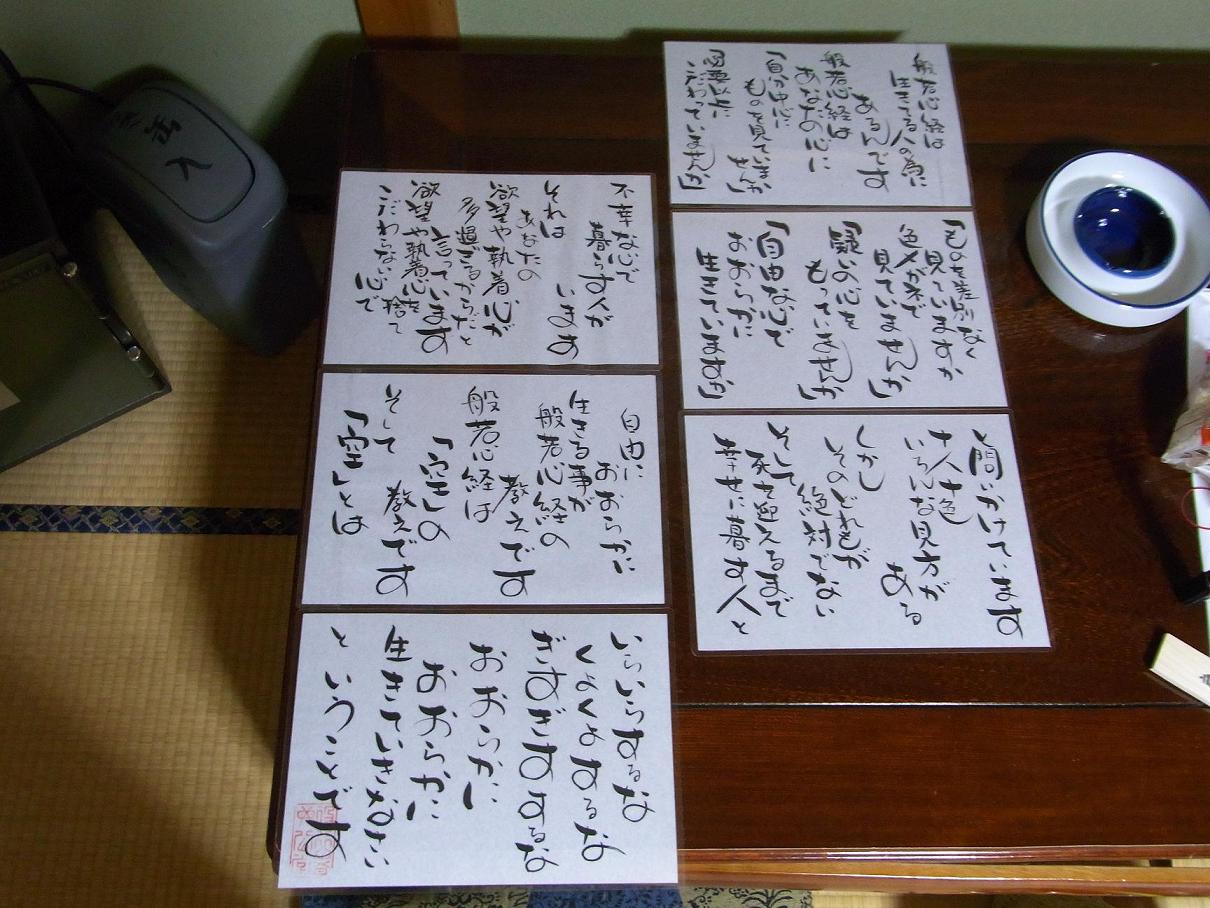 般若心経は
生きてる人の為に
あるんです
般若心経は
あなたの心に
「自分中心に
ものを見ていませんか」
因要以に
こだわっていませんか」
「ものを差別なく
見ていますか
色メガネで
見ていませんか」
「疑い心を
もっていませんか
「自由な心で
おおらかに
生きていますか」
と問いかけています
十人十色
いろんな見方が
ある
しかし
そのどれもが
絶対でない
そして
死を迎えるまで
幸せに暮す人と
不幸な心で
暮らす人が
います
それは
あなたの
欲望や執着心が
多過ぎるからだと
言っています
欲望や執着心を捨て
こだわらない心で
自由に
おおらかに
生きる事が
般若心経の
教えです
般若心経は
「空」の
教えです
そして
「空」とは
いらいらするな
くよくよするな
ぎすぎすするな
おおらかに
おおらかに
生きていきなさい
ということです